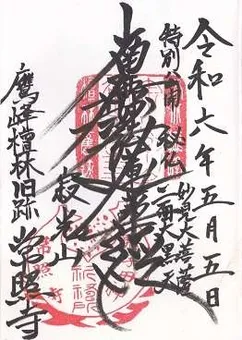 令和六年五月五日
特別公開 秘仏 妙見大菩薩
八面大黒天
南無妙法蓮華経
寂光山
鷹峰檀林旧跡 常照寺